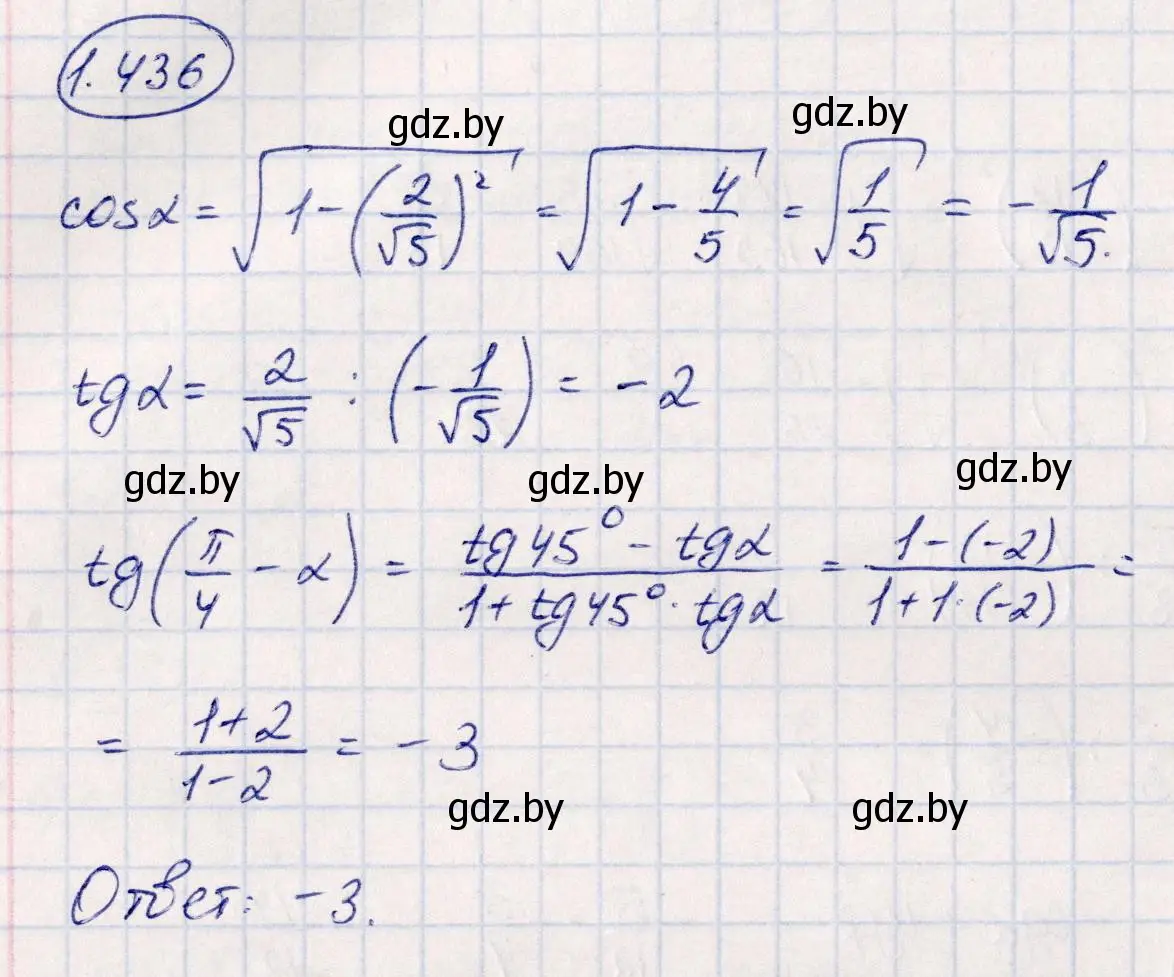 1.436
gdz.by
gdz.by
cos α = √(1 − (2/√5)²) = √(1 − 4/5) = √(1/5) = − 1/√5.
tg α = 2/√5 : (− 1/√5) = − 2
gdz.by
gdz.by
gdz.by
tg(π/4 − α) = (tg 45° − tg α)/(1 + tg 45° · tg α) = (1 − (−2))/(1 + 1 · (−2)) =
= (1 + 2)/(1 − 2) = − 3
gdz.by
gdz.by
Ответ: −3.